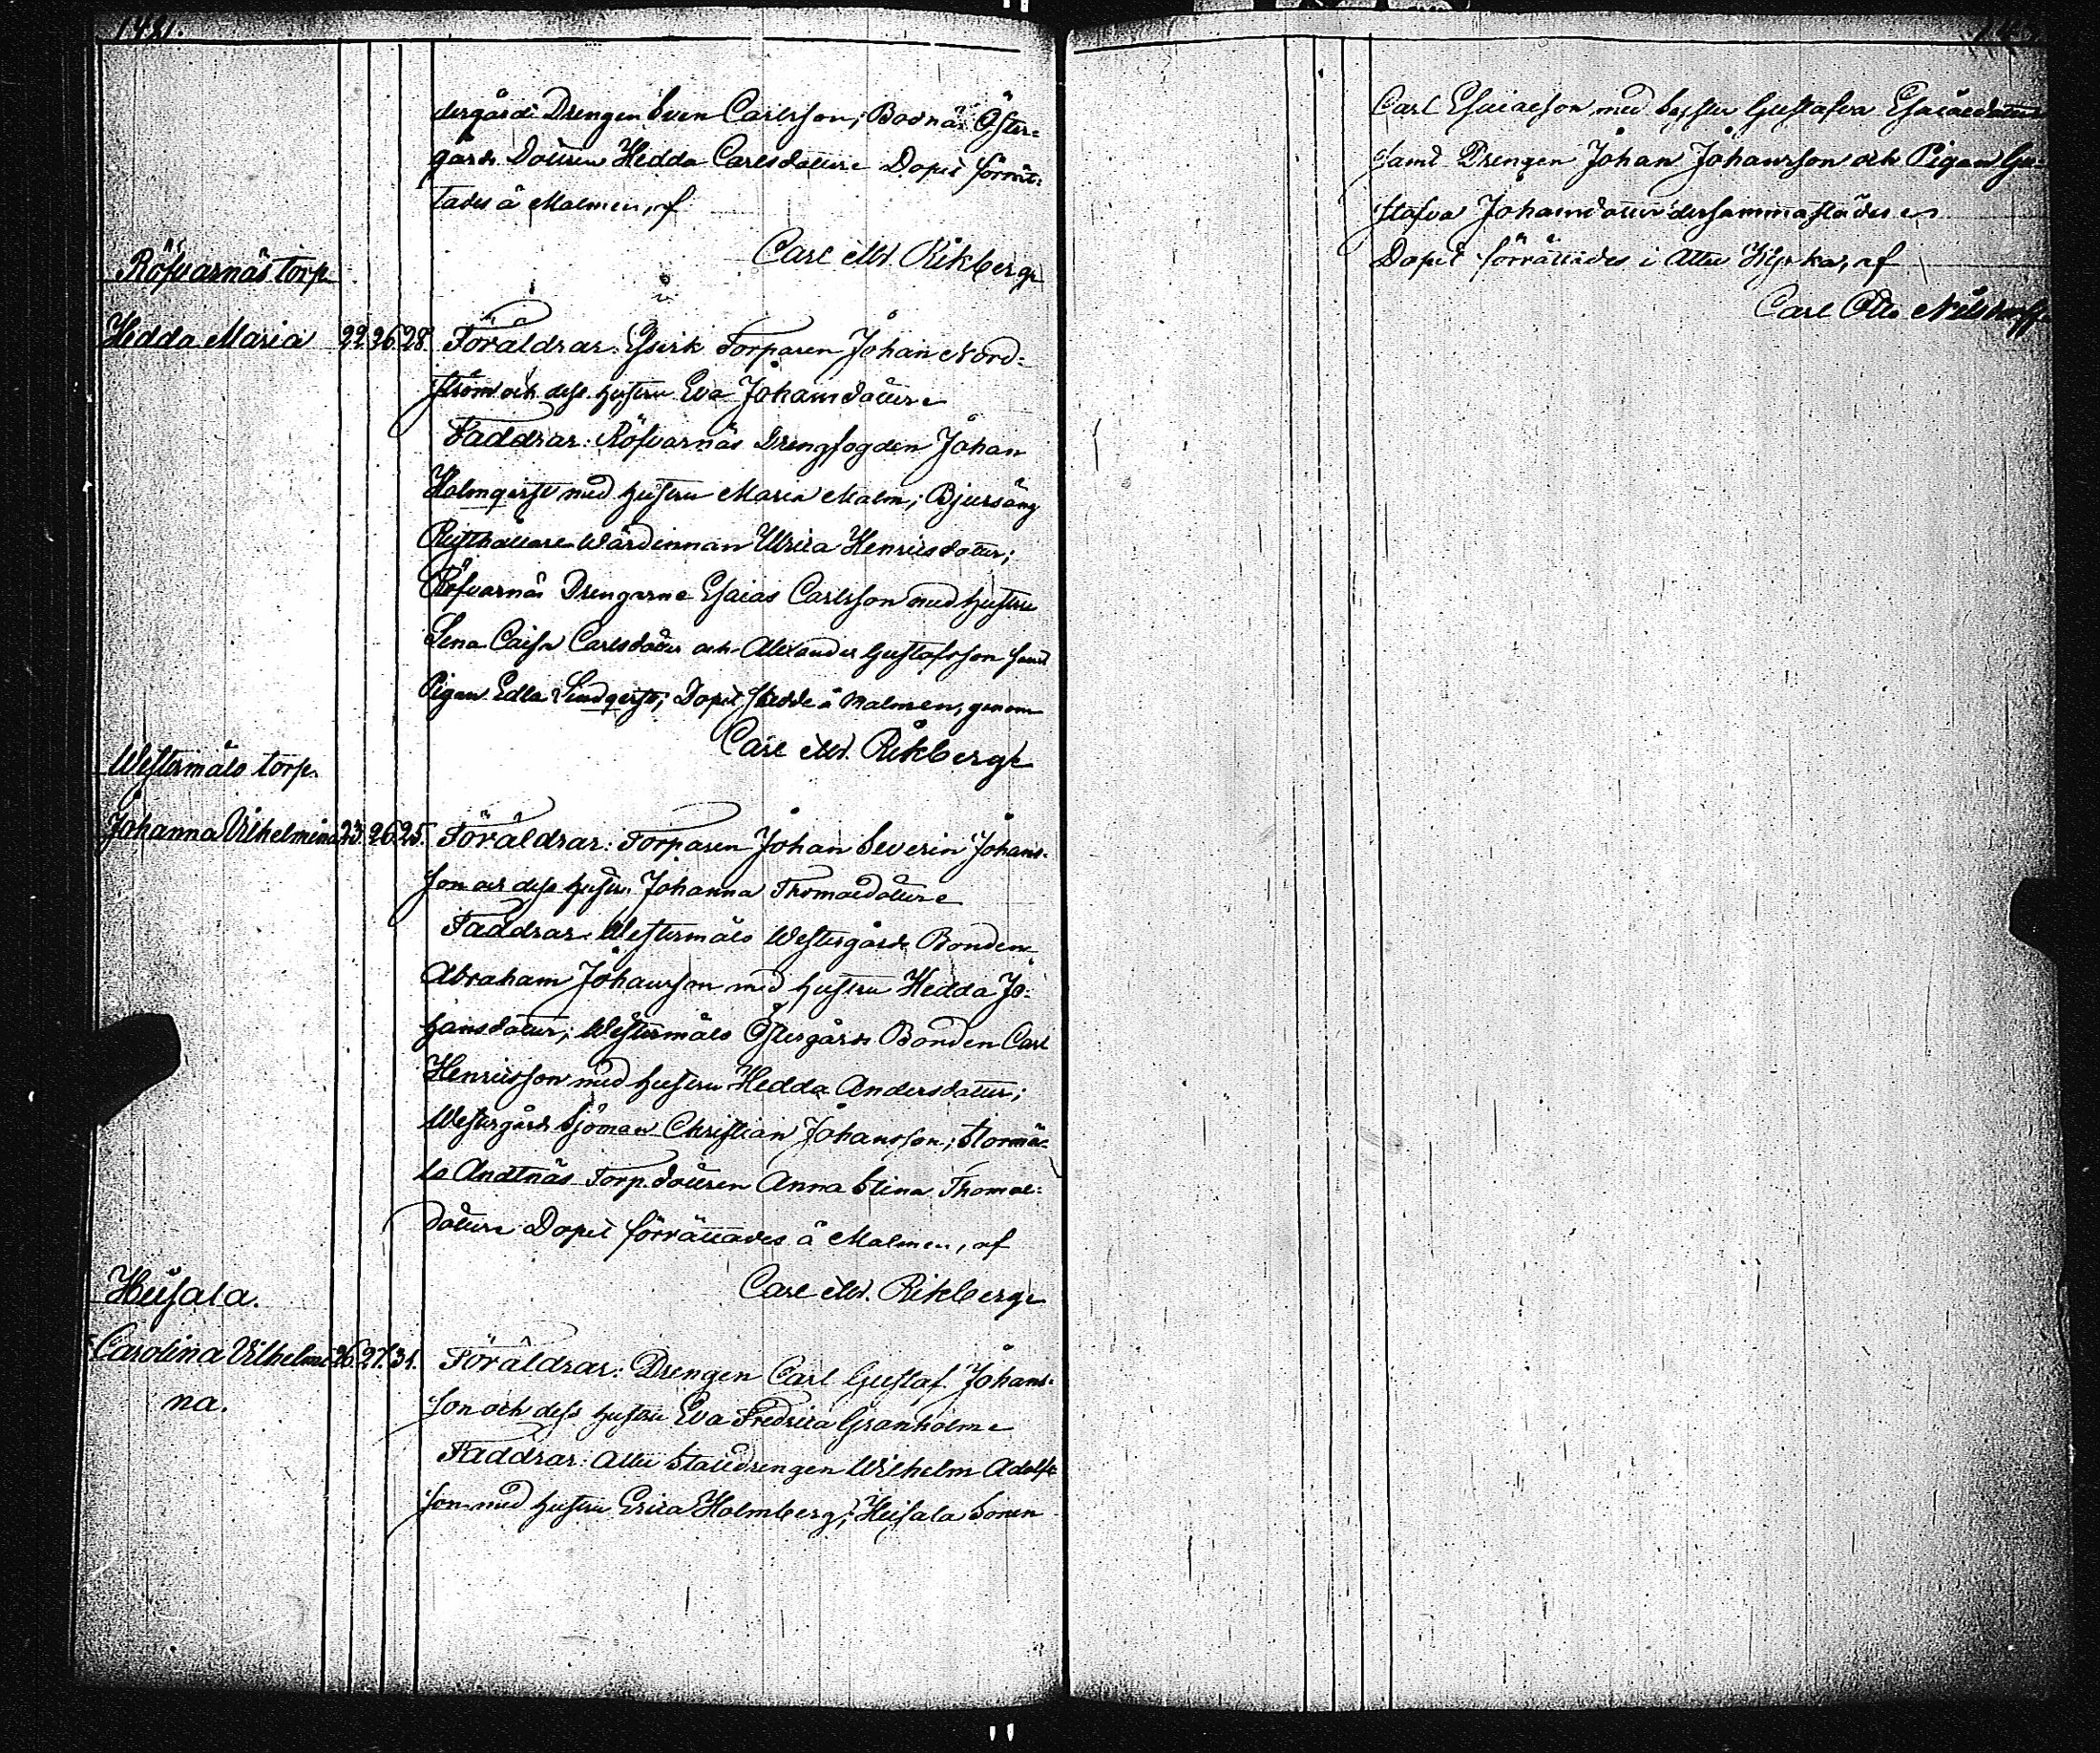 dergårds Drengen Sven Carlsson; Bodnäs Öster=
gårds Dottren Hedda Carlsdotter. Dopet förrät=
tades å Malmen, af
Carl M. Rikberg.
Röfvarnäs torp
Hedda Maria 22. 26. 28. Föräldrar: Torparen Johan Nord=
ström och dess hustru Eva Johansdotter.
Faddrar: Röfvarnäs Drengfogden Johan
Holmqvist med hustru Maria Malm; Bjursäng
Rusthållare Wärdinnan Ulrica Henricsdotter;
Röfvarnäs Drengarne Esaias Carlsson med hustru
Lena Caisa Carlsdotter och Alexander Gustafsson samt
Pigan Edla Lindqvist; Dopet skedde å Malmen, genom
Carl M. Rikberg.
Westermåls torp.
Johanna Vilhelmina 23. 26. 25. Föräldrar: Torparen Johan Severin Johans=
son och dess hustru Johanna Thomasdotter.
Faddrar: Westermåls Westergårds Bonden
Abraham Johansson med hustru Hedda Jo=
hansdotter; Westermåls Östergårds Bonden Carl
Henricsson med hustru Hedda Andersdotter;
Westergårds Sjöman Christian Johansson; Stormå=
la Torp. dottren Anna Stina Thomas=
dotter. Dopet förrättades å Malmen, af
Carl M. Rikberg.
Heisala.
Carolina Vilhelmi 26. 27. 31. Föräldrar: Drengen Carl Gustaf Johans=
na. son och dess hustru Eva Fredrica Granholm.
Faddrar: Attu Stalldrengen Wilhelm Adolfs
son med hustru Erica Holmberg; Heisala Sonen
Carl Esaiasson med Syster Gustafva Esaiaedotter
samt Drengen Johan Johansson och Pigan Gu=
stafva Johansdotter dersammastädes.
Dopet förrättades i Attu Kyrka, af
Carl Otto